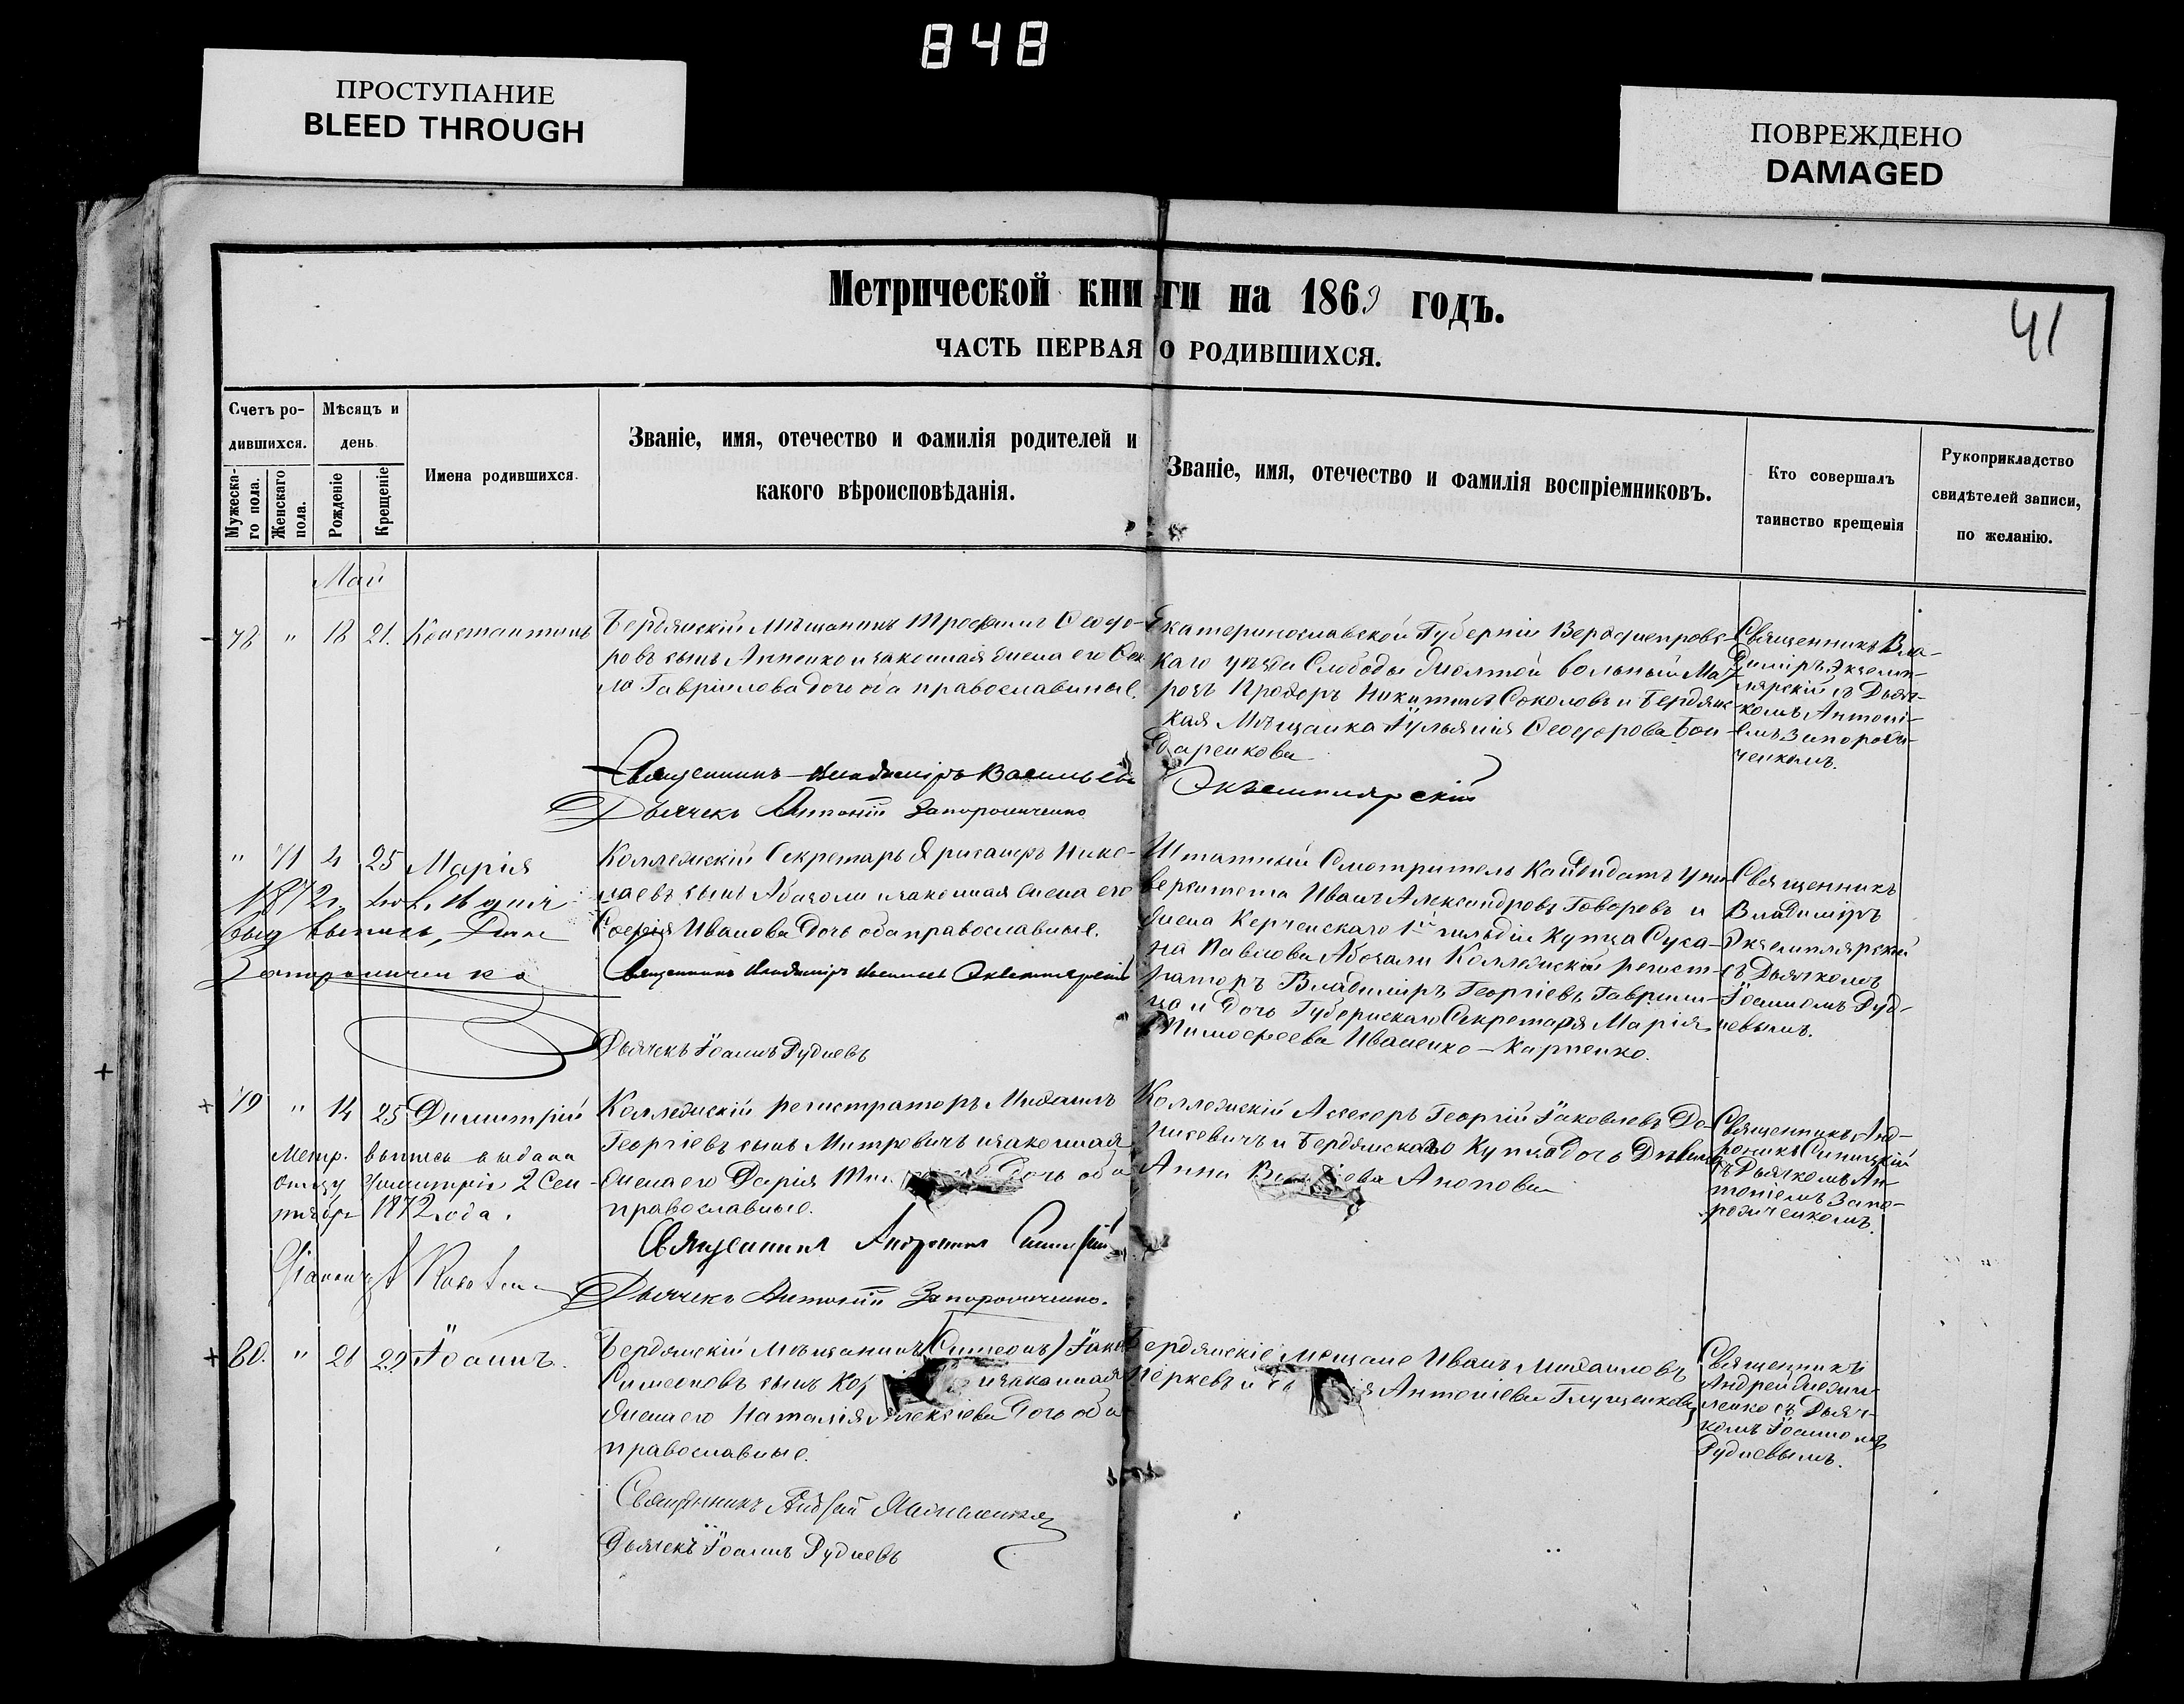 848
ПРОСТУПАНИЕ
BLEED THROUGH
ПОВРЕЖДЕНО
DAMAGED
Метрической книги на 1869 годъ.
41
ЧАСТЬ ПЕРВАЯ О РОДИВШИХСЯ.
Счетъ ро-
дившихся.
Мужеска-
го пола.
Женскаго
пола.
Мѣсяцъ и
день
Рожденіе
Крещеніе
Имена родившихся.
Званіе, имя, отечество и фамилія родителей и
какого вѣроисповѣданія.
Званіе, имя, отечество и фамилія воспріемниковъ.
Кто совершалъ
таинство крещенія
Рукоприкладство
свидѣтелей записи,
по желанію.
Май
78 " 18 21. Константинъ
Бердянскій Мѣщанинъ Трофимъ Ѳеодо-
ровъ сынъ и законная жена его
Гавріилова дочь оба православные.
Екатеринославской Губерніи Верходнепровс-
каго уѣзда Слободы вольный Мат-
розъ Прохоръ Никитинъ Соколовъ и Бердянс-
кая Мѣщанка Іульянія Ѳеодорова Бон-
даренкова
Священникъ Вла-
диміръ Экземп-
лярскій съ Дьяч-
комъ Антоні-
емъ Запорож-
ченкомъ.
Священникъ Владиміръ Васильевъ Экземплярскій
Дьячекъ Антоній Запорожченко
" 71 4 25 Марія
1872 г.
выпись,
Запорожченко
Коллежскій Секретарь Нико-
лаевъ сынъ Абазоли и законная жена его
Софія Иванова дочь оба православные.
Священникъ Владиміръ Васильевъ Экземплярскій
Дьячекъ Іоаннъ Рудневъ
Штатный Смотритель Кандидатъ Уни-
верситета Иванъ Александровъ Говоровъ и
жена Керченскаго 1й гильдіи Купца Суса-
на Павлова Абазали Коллежскій регист-
раторъ Владиміръ Георгіевъ Гаврили-
ца и дочь Губернскаго Секретаря Марія
Тимофеева Иваненко-Карпенко.
Священникъ
Владиміръ
Экземплярскій
съ Дьячкомъ
Іоанномъ Руд-
невымъ.
79 " 14 25 Димитрій
Метр. выпись выдана
отцу 2 Сен-
тября 1872 года.
Коллежскій регистраторъ Михаилъ
Георгіевъ сынъ Митровичъ и законная
жена его Дарія дочь оба
православные.
Священникъ Андроникъ Синицкій
Дьячекъ Антоній Запорожченко.
Коллежскій Ассесоръ Георгій Іаковлевъ Де-
нисевичъ и Бердянскаго Купца дочь Дѣвица
Анна Анопова
Священникъ Анд-
роникъ Синицкій
съ Дьячкомъ Ан-
тоніемъ Запо-
рожченкомъ.
80. " 21 29 Іоаннъ.
Бердянскій Мѣщанинъ (Симеонъ) Іаковъ
Симеоновъ сынъ и законная
жена его Наталія Алексіева дочь оба
православные.
Бердянскіе мещане Иванъ Михаиловъ
и Антоніева Глущенкова
Священникъ
Андрей
съ Дьяч-
комъ Іоанномъ
Рудневымъ.
Священникъ Андрей
Дьячекъ Іоаннъ Рудневъ